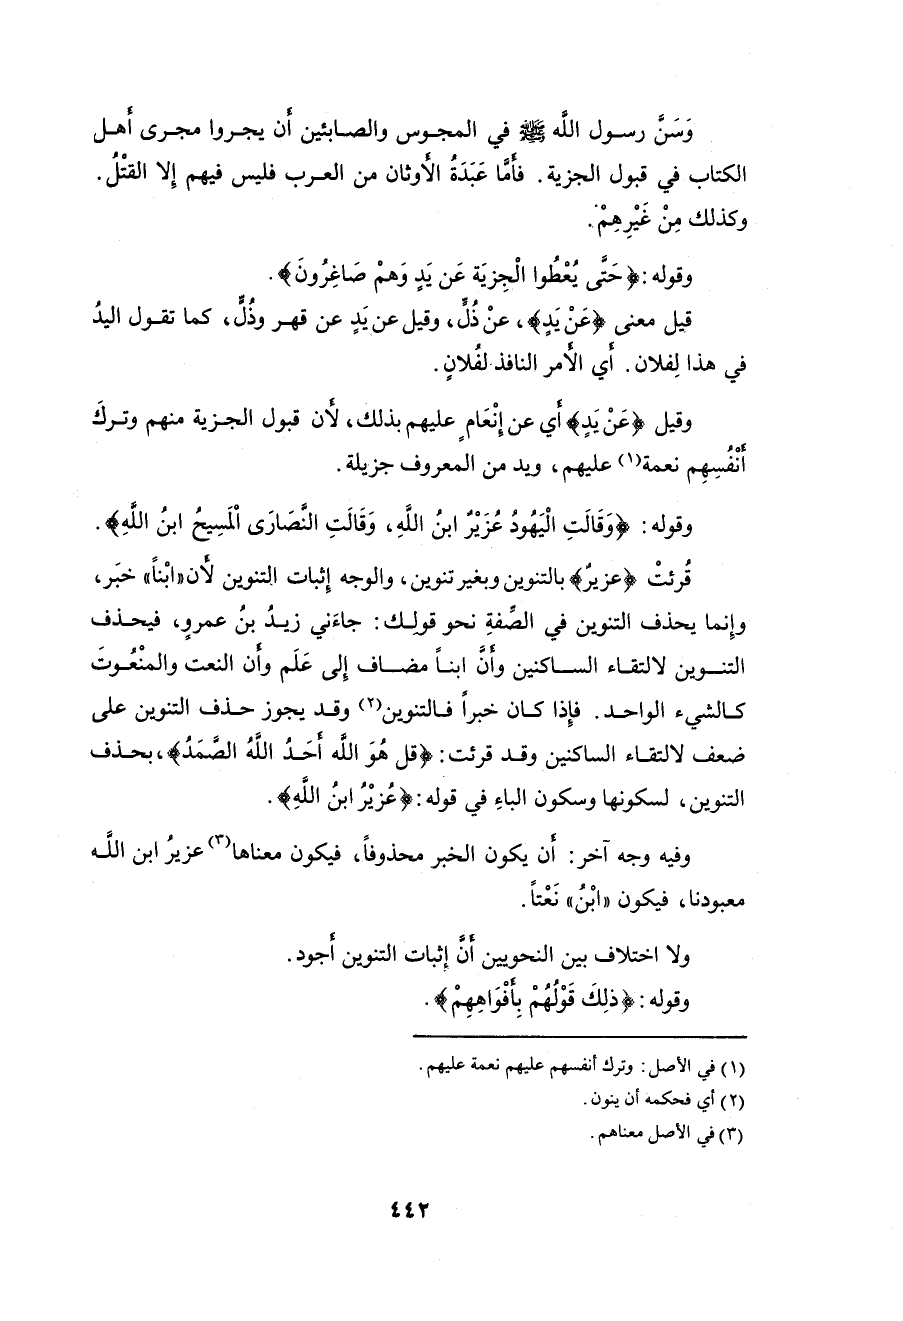 وَسَنَّ رسول اللَّه ﷺ في المجوس والصابئين أَن يجروا مجرى أَهل
الكتاب في قبول الجزية. فأَمَّا عَبَدَةُ الأَوثان من العرب فليس فيهم إلا القتْلُ.
وكذلك مِنْ غَيْرِهِمْ.
وقوله: ﴿حَتَّى يُعْطُوا الْجِزيَة عَن يَدٍ وَهمْ صَاغِرُونَ﴾.
قيل معنى ﴿عَنْ يَدٍ﴾، عنْ ذُلٍّ، وقيل عن يَدٍ عن قهر وذُلٍّ، كما تقول اليدُ
في هذا لِفلان. أَي الأَمر النافذ لفُلانٍ.
وقيل ﴿عَنْ يَدٍ﴾ أَي عن إنْعَامٍ عليهم بذلك، لأَن قبول الجزية منهم وتركَ
أَنْفُسِهِم نعمة(١) عليهم، ويد من المعروف جزيلة.
وقوله: ﴿وَقَالَتِ الْيَهُودُ عُزَيْرٌ ابنُ اللَّهِ، وَقَالَتِ النَّصَارَى الْمَسِيحُ ابنُ اللَّهِ﴾.
قُرئتْ ﴿عزيرٌ﴾ بالتنوين وبغير تنوين، والوجه إثبات التنوين لأَن «ابْناً» خبَر،
وإنما يحذف التنوين في الصِّفةِ نحو قولِك: جاءَني زيدُ بنُ عمروٍ، فيحذف
التنوين لالتقاء الساكنين وأَنَّ ابناً مضاف إلى عَلَم وأَن النعت والمنْعُوتَ
كالشيء الواحد. فإذا كان خبراً فالتنوين(٢) وقد يجوز حذف التنوين على
ضعف لالتقاء الساكنين وقد قرئت: ﴿قل هُوَ اللَّه أَحَدُ اللَّهُ الصَّمَدُ﴾، بحذف
التنوين، لسكونها وسكون الباءِ في قوله: ﴿عُزيْرُ ابنُ اللَّهِ﴾.
وفيه وجه آخر: أَن يكون الخبر محذوفاً، فيكون معناها(٣) عزيرُ ابن اللَّه
معبودنا، فيكون «ابْنُ» نَعْتاً.
ولا اختلاف بين النحويين أَنَّ إثبات التنوين أَجود.
وقوله: ﴿ذلِكَ قَوْلُهُمْ بِأَفْوَاهِهِمْ﴾.
(١) في الأصل: وترك أنفسهم عليهم نعمة عليهم.
(٢) أي فحكمه أن ينون.
(٣) في الأصل معناهم.
٤٤٢